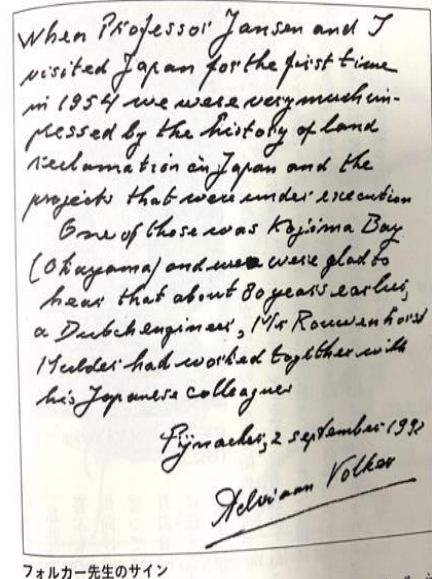 When Professor Jansen and I
visited Japan for the first time
in 1954 we were very much im-
pressed by the history of land
reclamation in Japan and the
projects that were under execution
One of those was Kojima Bay
(Okayama) and we were glad to
hear that about 80 years earlier,
a Dutch engineer, Mr Rouwenhorst
Mulder had worked together with
his Japanese colleagues
Pijnacker, 2 september 199
Adriaan Volker
フォルカー先生のサイン